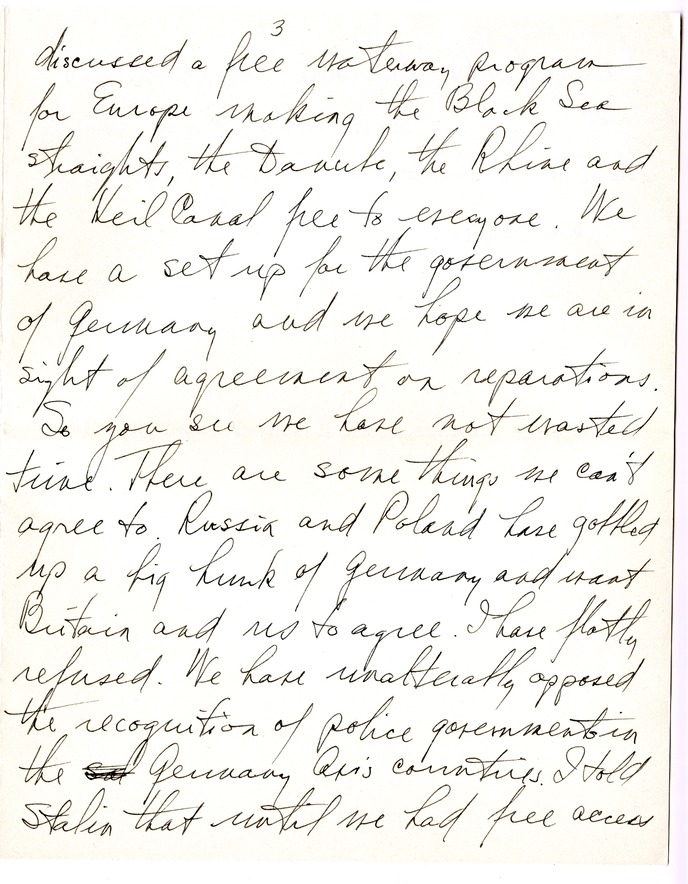 3
discussed a free waterway program
for Europe making the Black Sea
straights, the Danube, the Rhine and
the Keil Canal free to everyone. We
have a set up for the government
of Germany and we hope we are in
sight of agreement on reparations.
So you see we have not wasted
time. There are some things we can't
agree to. Russia and Poland have gobbled
up a big hunk of Germany and want
Britain and us to agree. I have flatly
refused. We have unalterally opposed
the recognition of police governments in
the Germany Axis countries. I told
Stalin that until we had free access